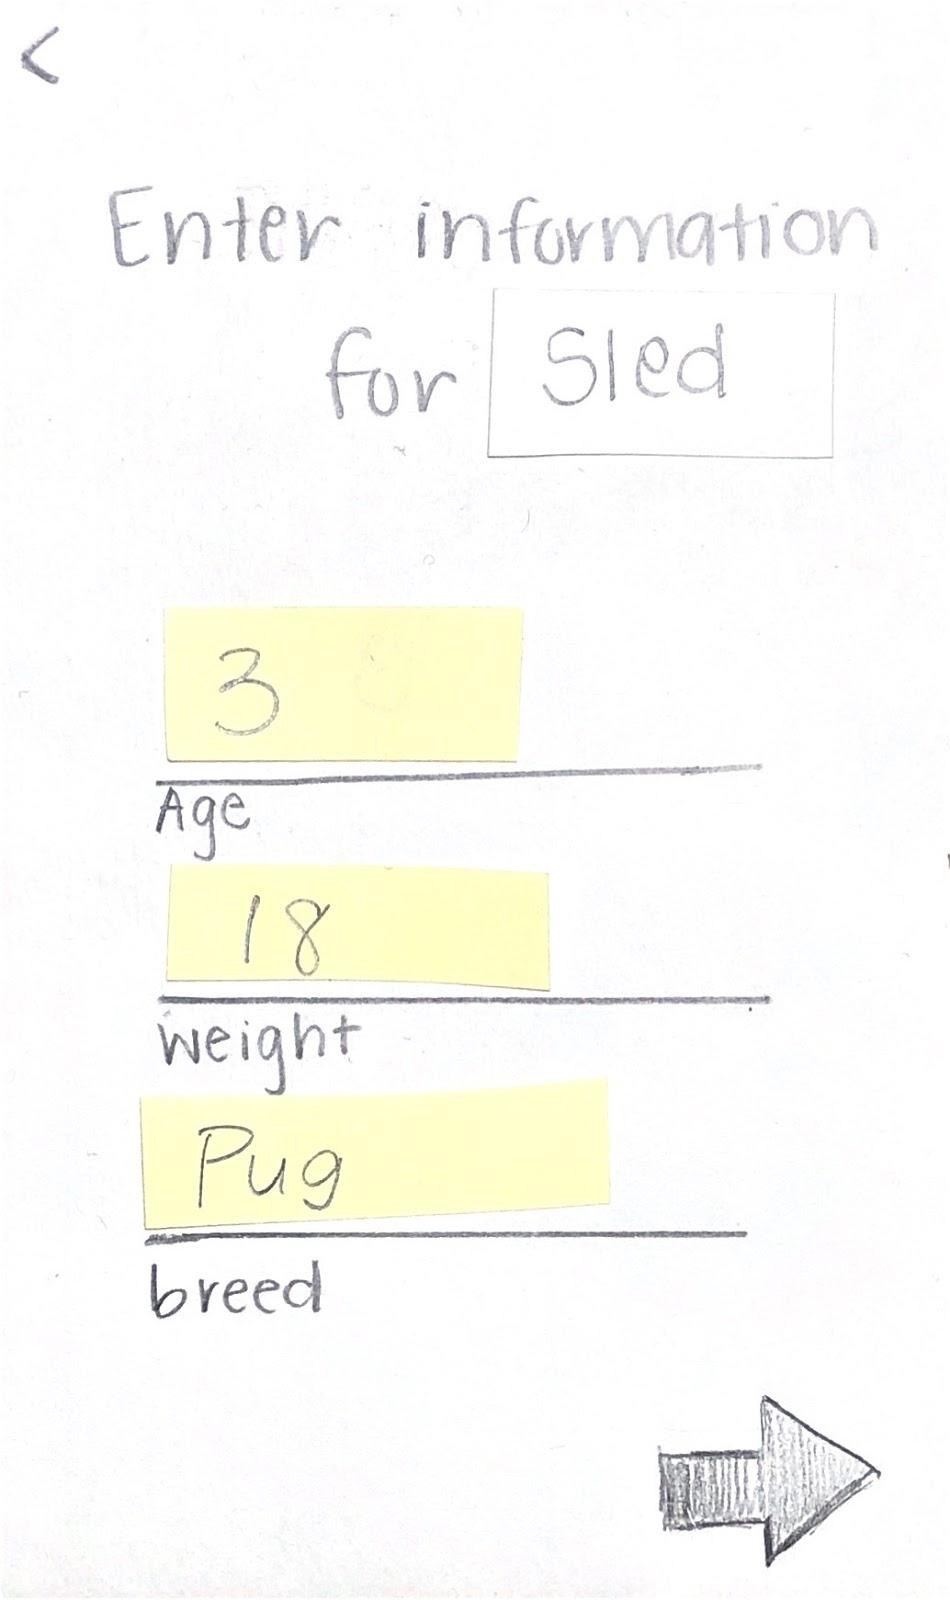 <
Enter information
for Sled
3
Age
18
weight
Pug
breed